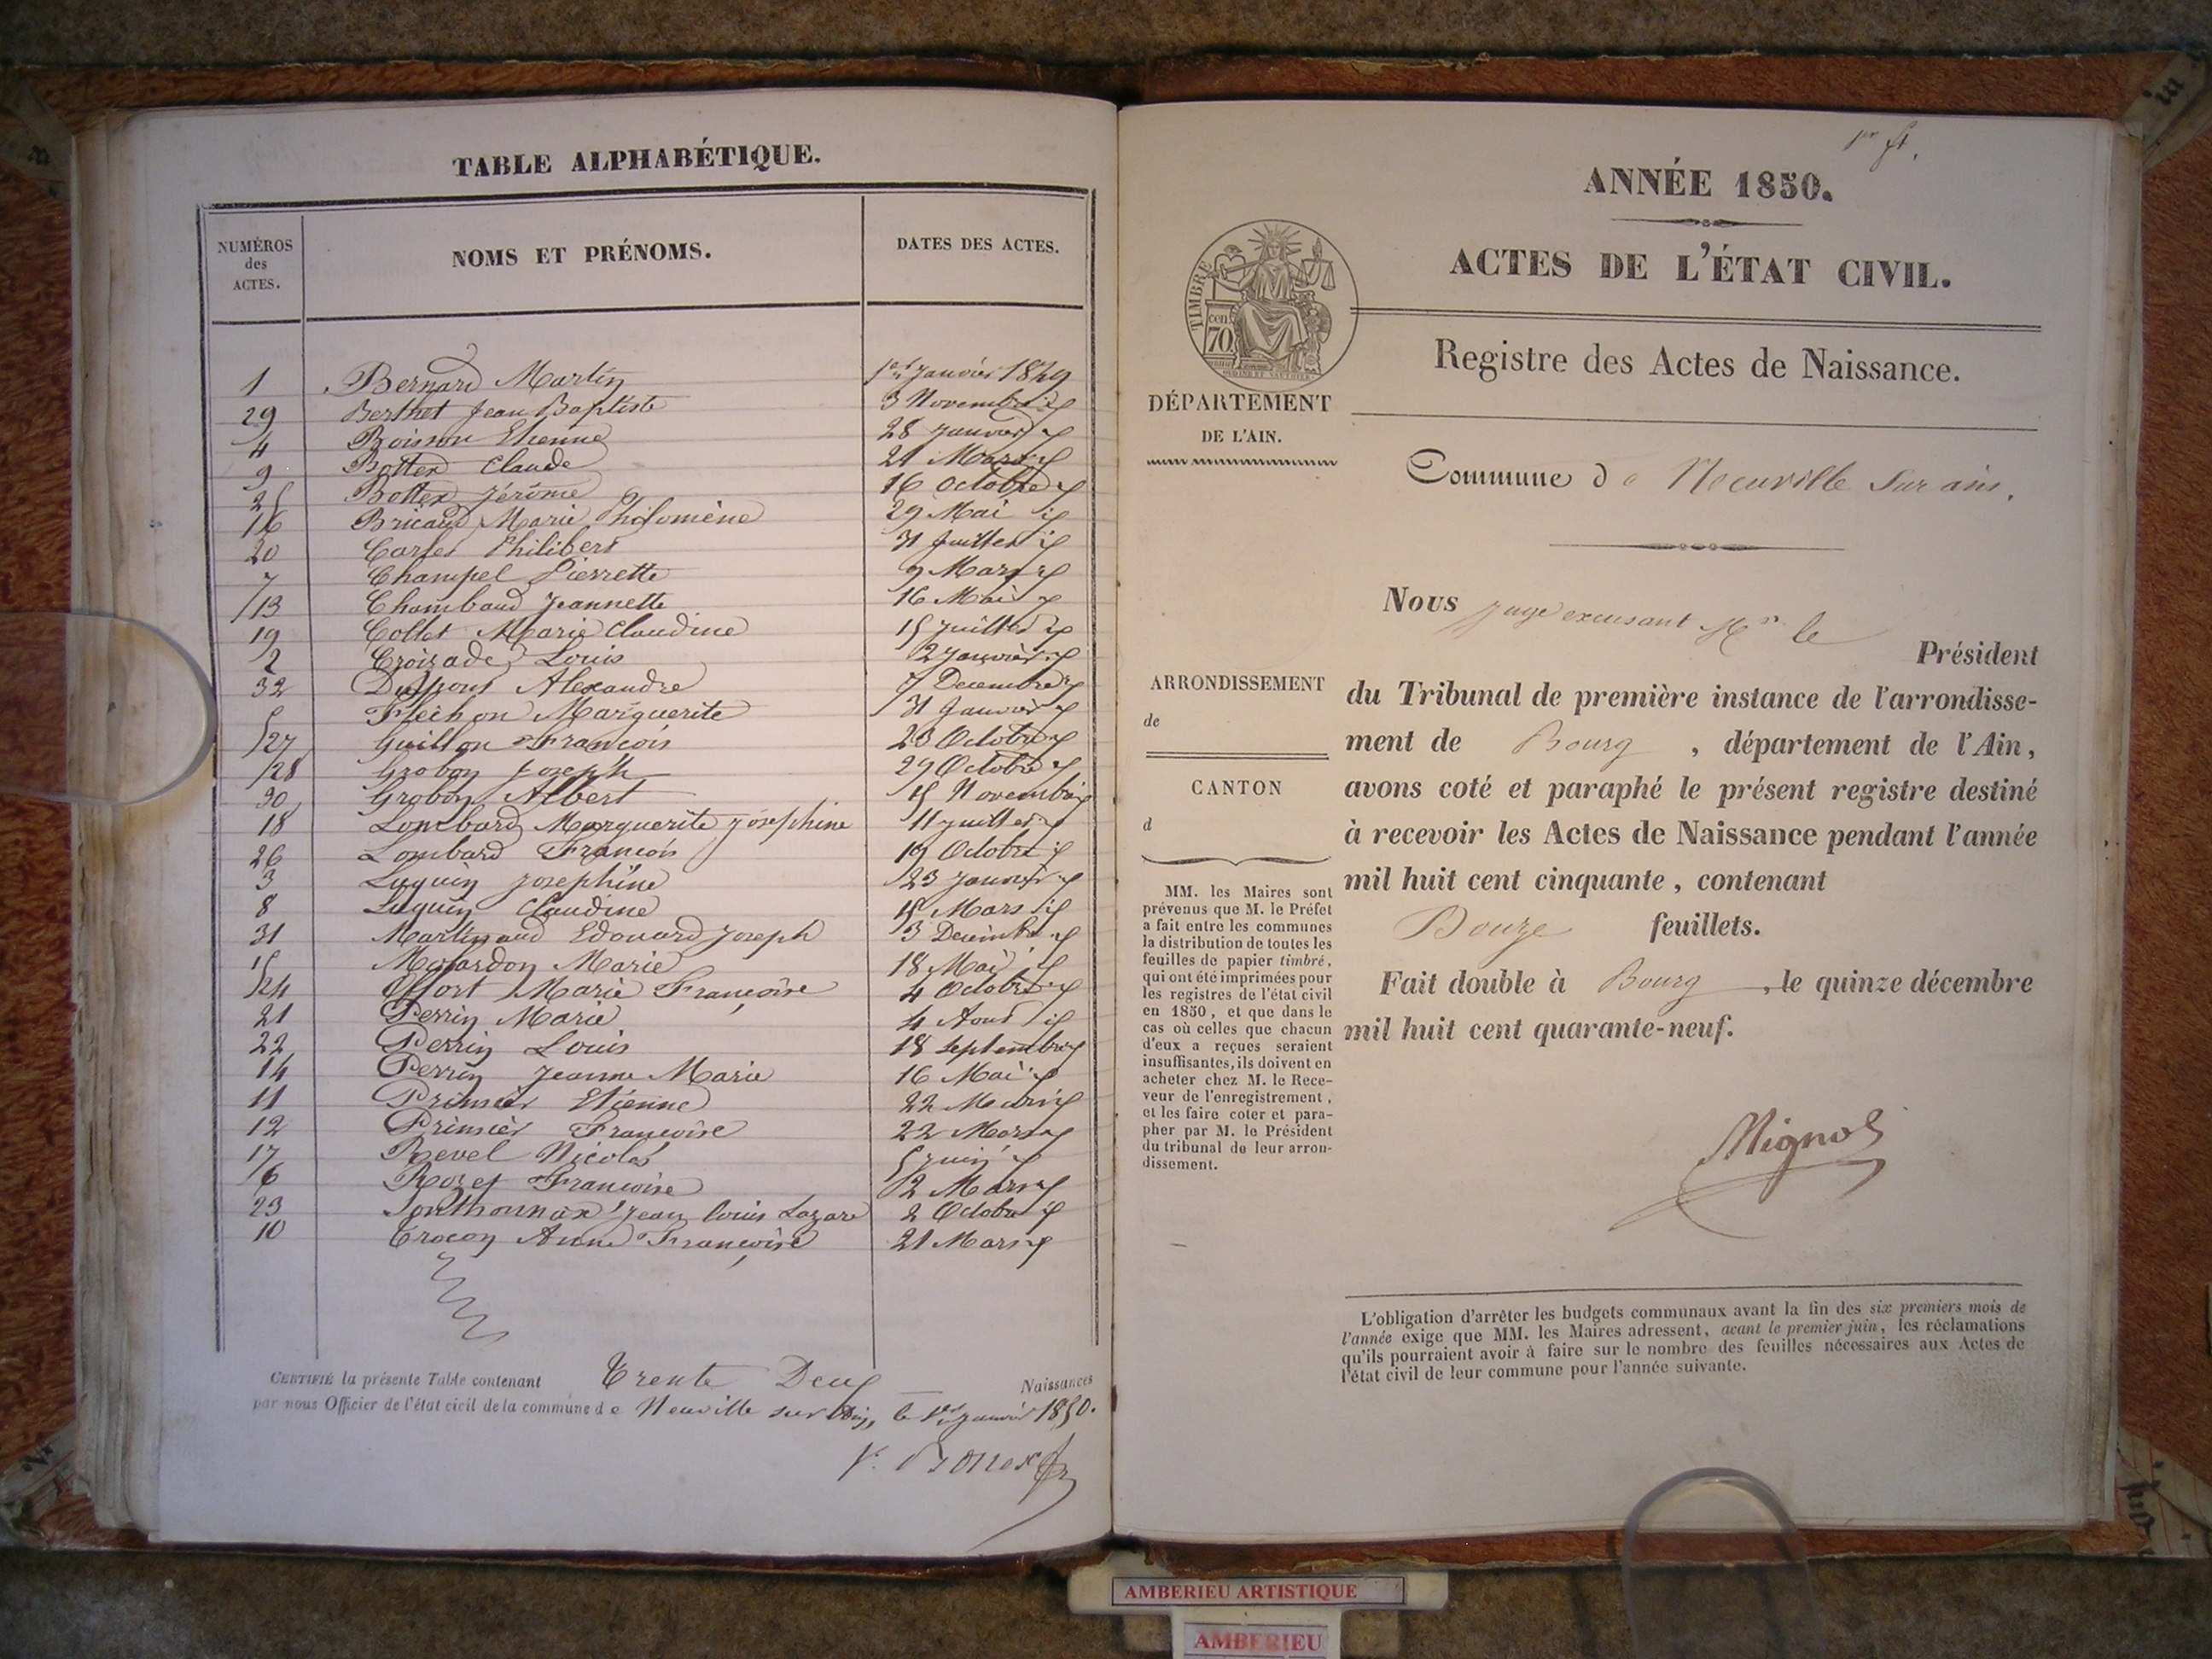 TABLE ALPHABÉTIQUE.
NUMÉROS
des
ACTES.
NOMS ET PRÉNOMS.
DATES DES ACTES.
1 Bernard Martin 1er Janvier 1849
29 Berthet Jean Baptiste 3 Novembre id
4 Boisson Etienne 28 Janvier id
9 Bottex Claude 21 Mars id
25 Bottex Jérôme 16 Octobre id
16 Bricaud Marie Philomène 29 Mai id
20 Philibert 31 Juillet id
7 Champel Pierrette 9 Mars id
13 Chambaud Jeannette 16 Mai id
19 Collet Marie Claudine 15 Juillet id
2 Croizade Louis 2 Janvier id
32 Dupont Alexandre 7 Decembre id
5 Fléchon Marguerite 31 Janvier id
27 Guillon François 23 Octobre id
28 Grobon Joseph 29 Octobre id
30 Grobon Albert 15 Novembre id
18 Lombard Marguerite Joséphine 11 Juillet id
26 Lombard François 19 Octobre id
3 Luquin Joséphine 23 Janvier id
8 Luquin Claudine 15 Mars id
31 Martinand Edouard Joseph 3 Decembre id
15 Marie 18 Mai id
24 Marie Françoise 4 Octobre id
21 Perrin Marie 4 Aout id
22 Perrin Louis 18 Septembre id
14 Perrin Jeanne Marie 16 Mai id
11 Prémier Etienne 22 Mars id
12 Prémier Françoise 22 Mars id
17 Revel Nicolas 5 Juin id
6 Rozet Françoise 2 Mars id
23 Sonthonnax Jean Louis Lazare 2 Octobre id
10 Trocon Anne Françoise 21 Mars id
CERTIFIÉ la présente Table contenant Trente Deux Naissances
par nous Officier de l'état civil de la commune de Neuville sur Ain, le 1er Janvier 1850.
1er ft.
ANNÉE 1850.
ACTES DE L'ÉTAT CIVIL.
TIMBRE
cent
70
Registre des Actes de Naissance.
DÉPARTEMENT
DE L'AIN.
Commune de Neuville sur ain.
Nous juge excusant Mr le
Président
ARRONDISSEMENT
de
CANTON
d
du Tribunal de première instance de l'arrondisse-
ment de Bourg, département de l'Ain,
avons coté et paraphé le présent registre destiné
à recevoir les Actes de Naissance pendant l'année
mil huit cent cinquante, contenant
Douze feuillets.
Fait double à Bourg, le quinze décembre
mil huit cent quarante-neuf.
MM. les Maires sont
prévenus que M. le Préfet
a fait entre les communes
la distribution de toutes les
feuilles de papier timbré,
qui ont été imprimées pour
les registres de l'état civil
en 1850, et que dans le
cas où celles que chacun
d'eux a reçues seraient
insuffisantes, ils doivent en
acheter chez M. le Rece-
veur de l'enregistrement,
et les faire coter et para-
pher par M. le Président
du tribunal de leur arron-
dissement.
L'obligation d'arrêter les budgets communaux avant la fin des six premiers mois de
l'année exige que MM. les Maires adressent, avant le premier juin, les réclamations
qu'ils pourraient avoir à faire sur le nombre des feuilles nécessaires aux Actes de
l'état civil de leur commune pour l'année suivante.
AMBERIEU ARTISTIQUE
AMBERIEU